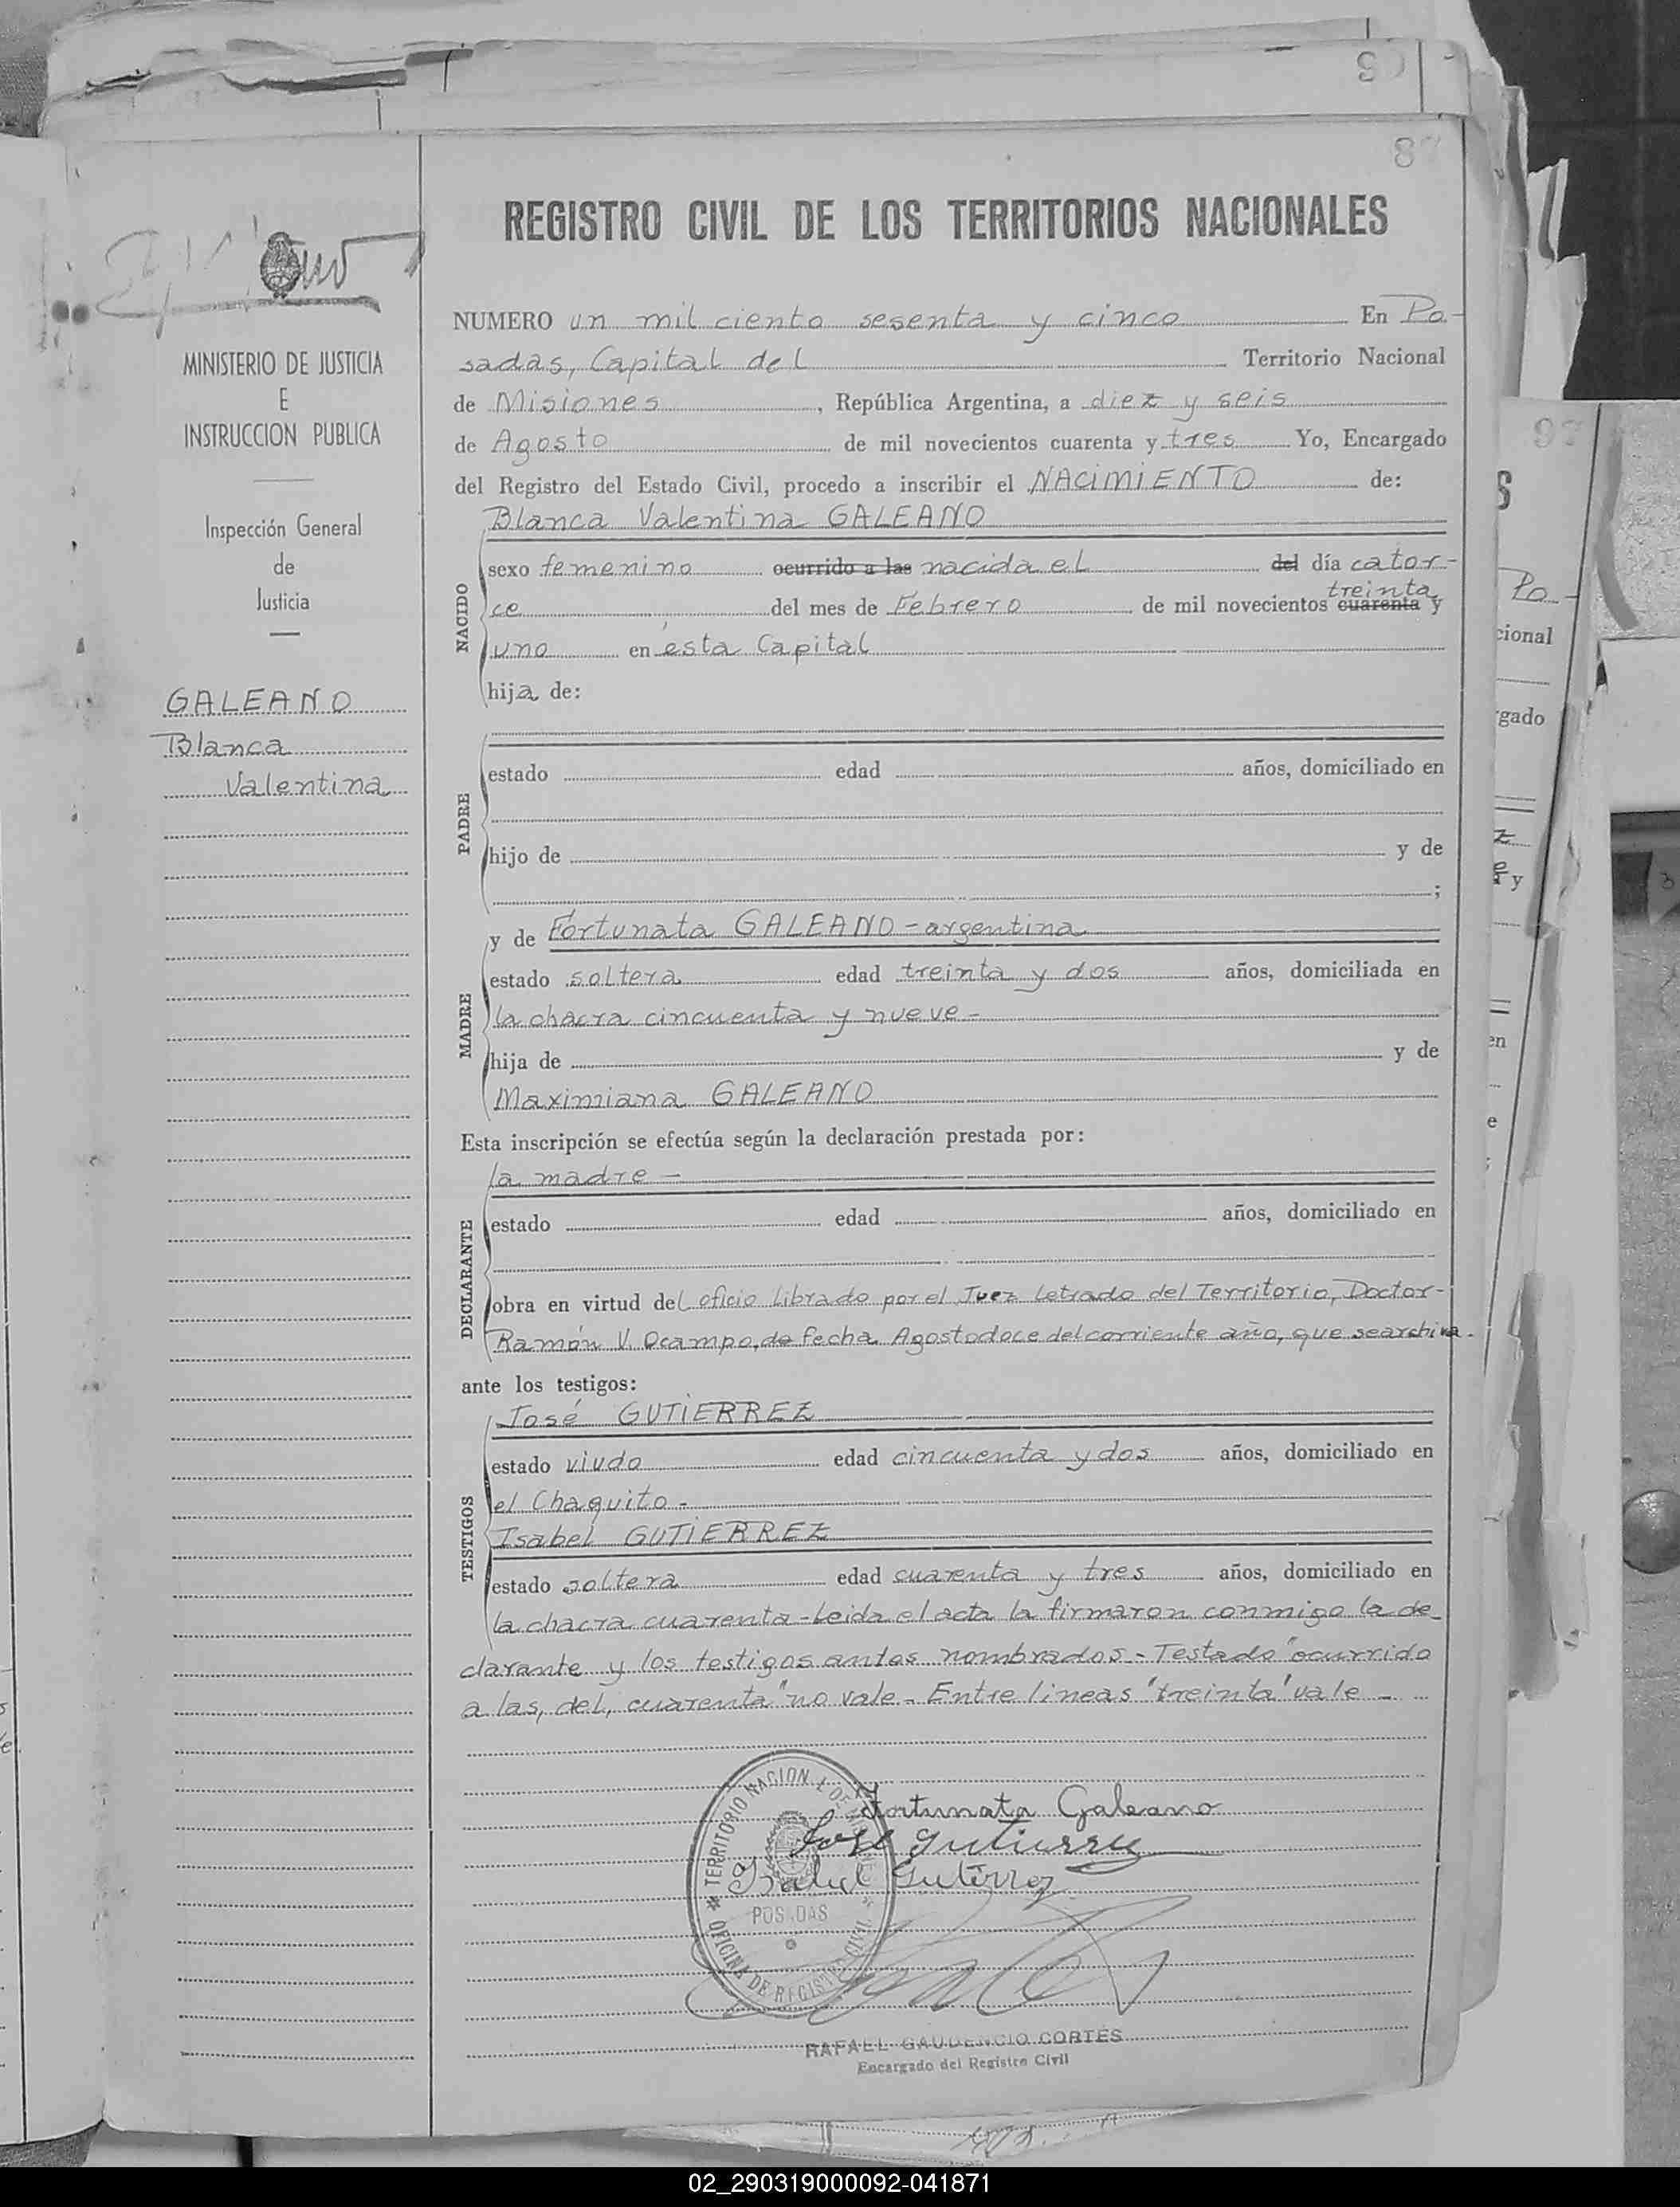 87
REGISTRO CIVIL DE LOS TERRITORIOS NACIONALES
MINISTERIO DE JUSTICIA
E
INSTRUCCION PUBLICA
Inspección General
de
Justicia
GALEANO
Blanca
Valentina
NUMERO un mil ciento sesenta y cinco En Po-
sadas, Capital del Territorio Nacional
de Misiones, República Argentina, a diez y seis
de Agosto de mil novecientos cuarenta y tres Yo, Encargado
del Registro del Estado Civil, procedo a inscribir el NACIMIENTO de:
NACIDO
Blanca Valentina GALEANO
sexo femenino ocurrido a las nacida el del día cator-
treinta
ce del mes de Febrero de mil novecientos cuarenta y
uno en ésta Capital
hija de:
PADRE
estado edad años, domiciliado en
hijo de y de
;
MADRE
y de Fortunata GALEANO - argentina
estado soltera edad treinta y dos años, domiciliada en
la chacra cincuenta y nueve -
hija de y de
Maximiana GALEANO
Esta inscripción se efectúa según la declaración prestada por:
DECLARANTE
la madre -
estado edad años, domiciliado en
obra en virtud del oficio librado por el Juez Letrado del Territorio, Doctor-
Ramón V. Ocampo, de fecha Agosto doce del corriente año, que se archiva.
ante los testigos:
TESTIGOS
José GUTIERREZ
estado viudo edad cincuenta y dos años, domiciliado en
el Chaquito -
Isabel GUTIERREZ
estado soltera edad cuarenta y tres años, domiciliado en
la chacra cuarenta - Leida el acta la firmaron conmigo la de-
clarante y los testigos antes nombrados - Testado "ocurrido
a las, del, cuarenta" no vale - Entre lineas "treinta" vale -
Fortunata Galeano
José Gutierrez
Isabel Gutierrez
TERRITORIO NACIONAL DE
POSADAS
OFICINA DE REGISTRO CIVIL
RAFAEL GAUDENCIO CORTES
Encargado del Registro Civil
02_290319000092-041871